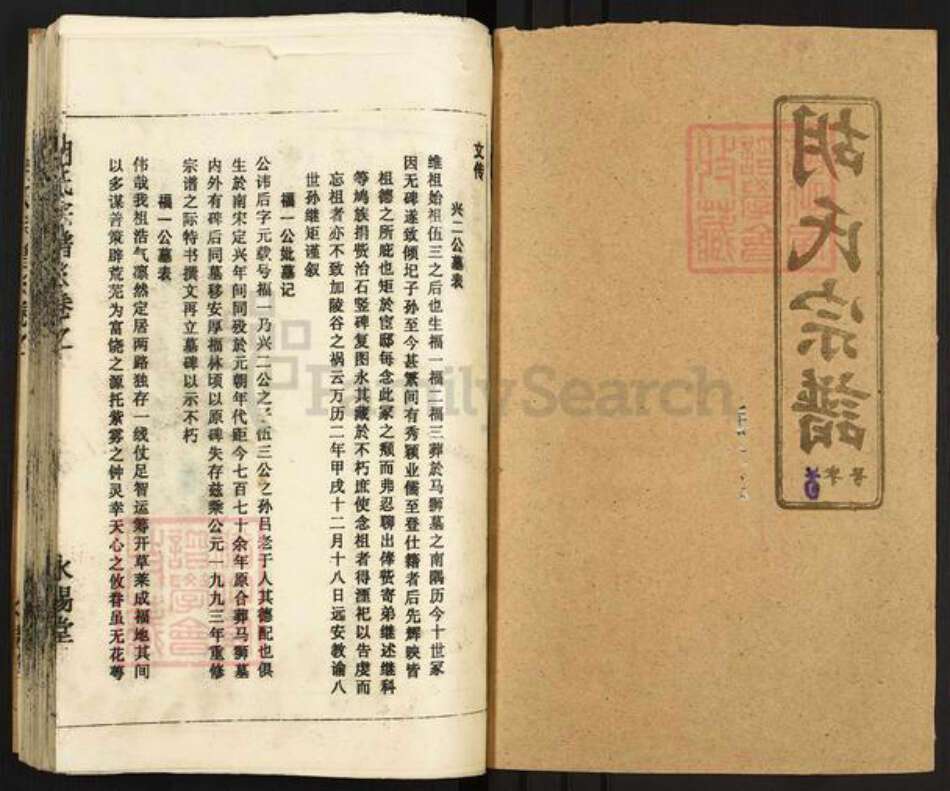 胡氏宗譜
文传
兴二公墓表
维祖始祖伍三之后也生福一福二福三葬於马狮墓之南隅历今十世冢
因无碑遂致倾圮子孙至今甚繁间有秀颖业儒至登仕籍者后先辉映皆
祖德之所庇也矩於宦邸每念此冢之颓而弗忍聊出俸赀寄弟继述继科
等鸠族捐赀治石竖碑复图永其藏於不朽庶使念祖者得湮祀以告虔而
忘祖者亦不致加陵谷之祸云万历二年甲戌十二月十八日远安教谕八
世孙继矩谨叙
福一公妣墓记
公讳后字元载号福一乃兴二公之子伍三公之孙吕老于人其德配也俱
生於南宋定兴年间同殁於元朝年代距今七百七十余年原合葬马狮墓
内外有碑后同墓移安厚福林顷以原碑失存兹乘公元一九九三年重修
宗谱之际特书撰文再立墓碑以示不朽
福一公墓表
伟哉我祖浩气凛然定居两路独存一线仗足智运筹开草莱成福地其间
以多谋善策辟荒芜为富饶之源托紫雾之钟灵幸天心之攸眷虽无花萼
永陽堂
FamilySearch